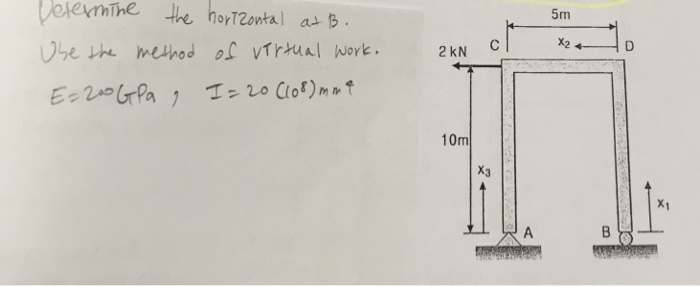 Determine the horizontal at B.
Use the method of virtual work.
E=200GPa, I=20(10⁸)mm⁴
5m
2 kN
C
X2
D
10m
X3
X1
A
B